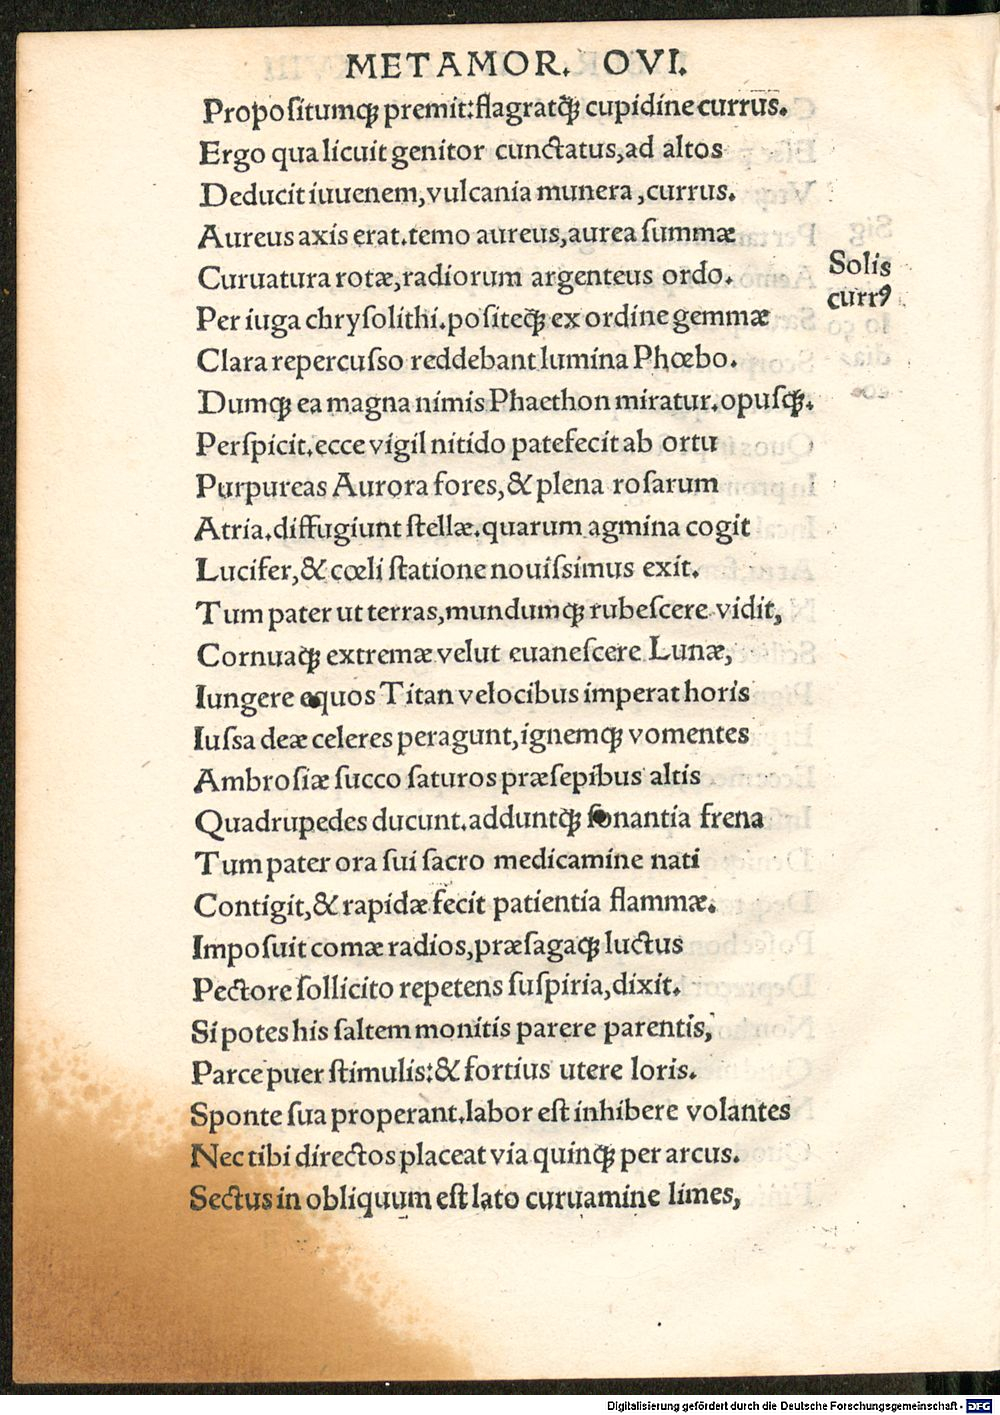 METAMOR. OVI.
Propoſitumqꝫ premit:flagratqꝫ cupidine currus.
Ergo qua licuit genitor cunctatus,ad altos
Deducit iuuenem,vulcania munera,currus.
Aureus axis erat.temo aureus,aurea ſummæ
Curuatura rotæ,radiorum argenteus ordo.
Per iuga chryſolithi.poſiteqꝫ ex ordine gemmæ
Clara repercuſſo reddebant lumina Phœbo.
Dumqꝫ ea magnanimis Phaethon miratur.opuſqꝫ.
Perſpicit.ecce vigil nitido patefecit ab ortu
Purpureas Aurora fores,& plena roſarum
Atria.diffugiunt ſtellæ.quarum agmina cogit
Lucifer,& cœli ſtatione nouiſſimus exit.
Tum pater ut terras,mundumqꝫ rubeſcere vidit,
Cornuaqꝫ extremæ velut euaneſcere Lunæ,
Iungere equos Titan velocibus imperat horis
Iuſſa deæ celeres peragunt,ignemqꝫ vomentes
Ambroſiæ ſucco ſaturos præſepibus altis
Quadrupedes ducunt.adduntqꝫ ſonantia frena
Tum pater ora ſui ſacro medicamine nati
Contigit,& rapidæ fecit patientia flammæ.
Impoſuit comæ radios,præſagaqꝫ luctus
Pectore ſollicito repetens ſuſpiria,dixit.
Si potes his ſaltem monitis parere parentis,
Parce puer ſtimulis:& fortius utere loris.
Sponte ſua properant.labor eſt inhibere volantes
Nec tibi directos placeat via quinqꝫ per arcus.
Sectus in obliquum eſt lato curuamine limes,
Solis
currꝯ
Digitalisierung gefördert durch die Deutsche Forschungsgemeinschaft - DFG